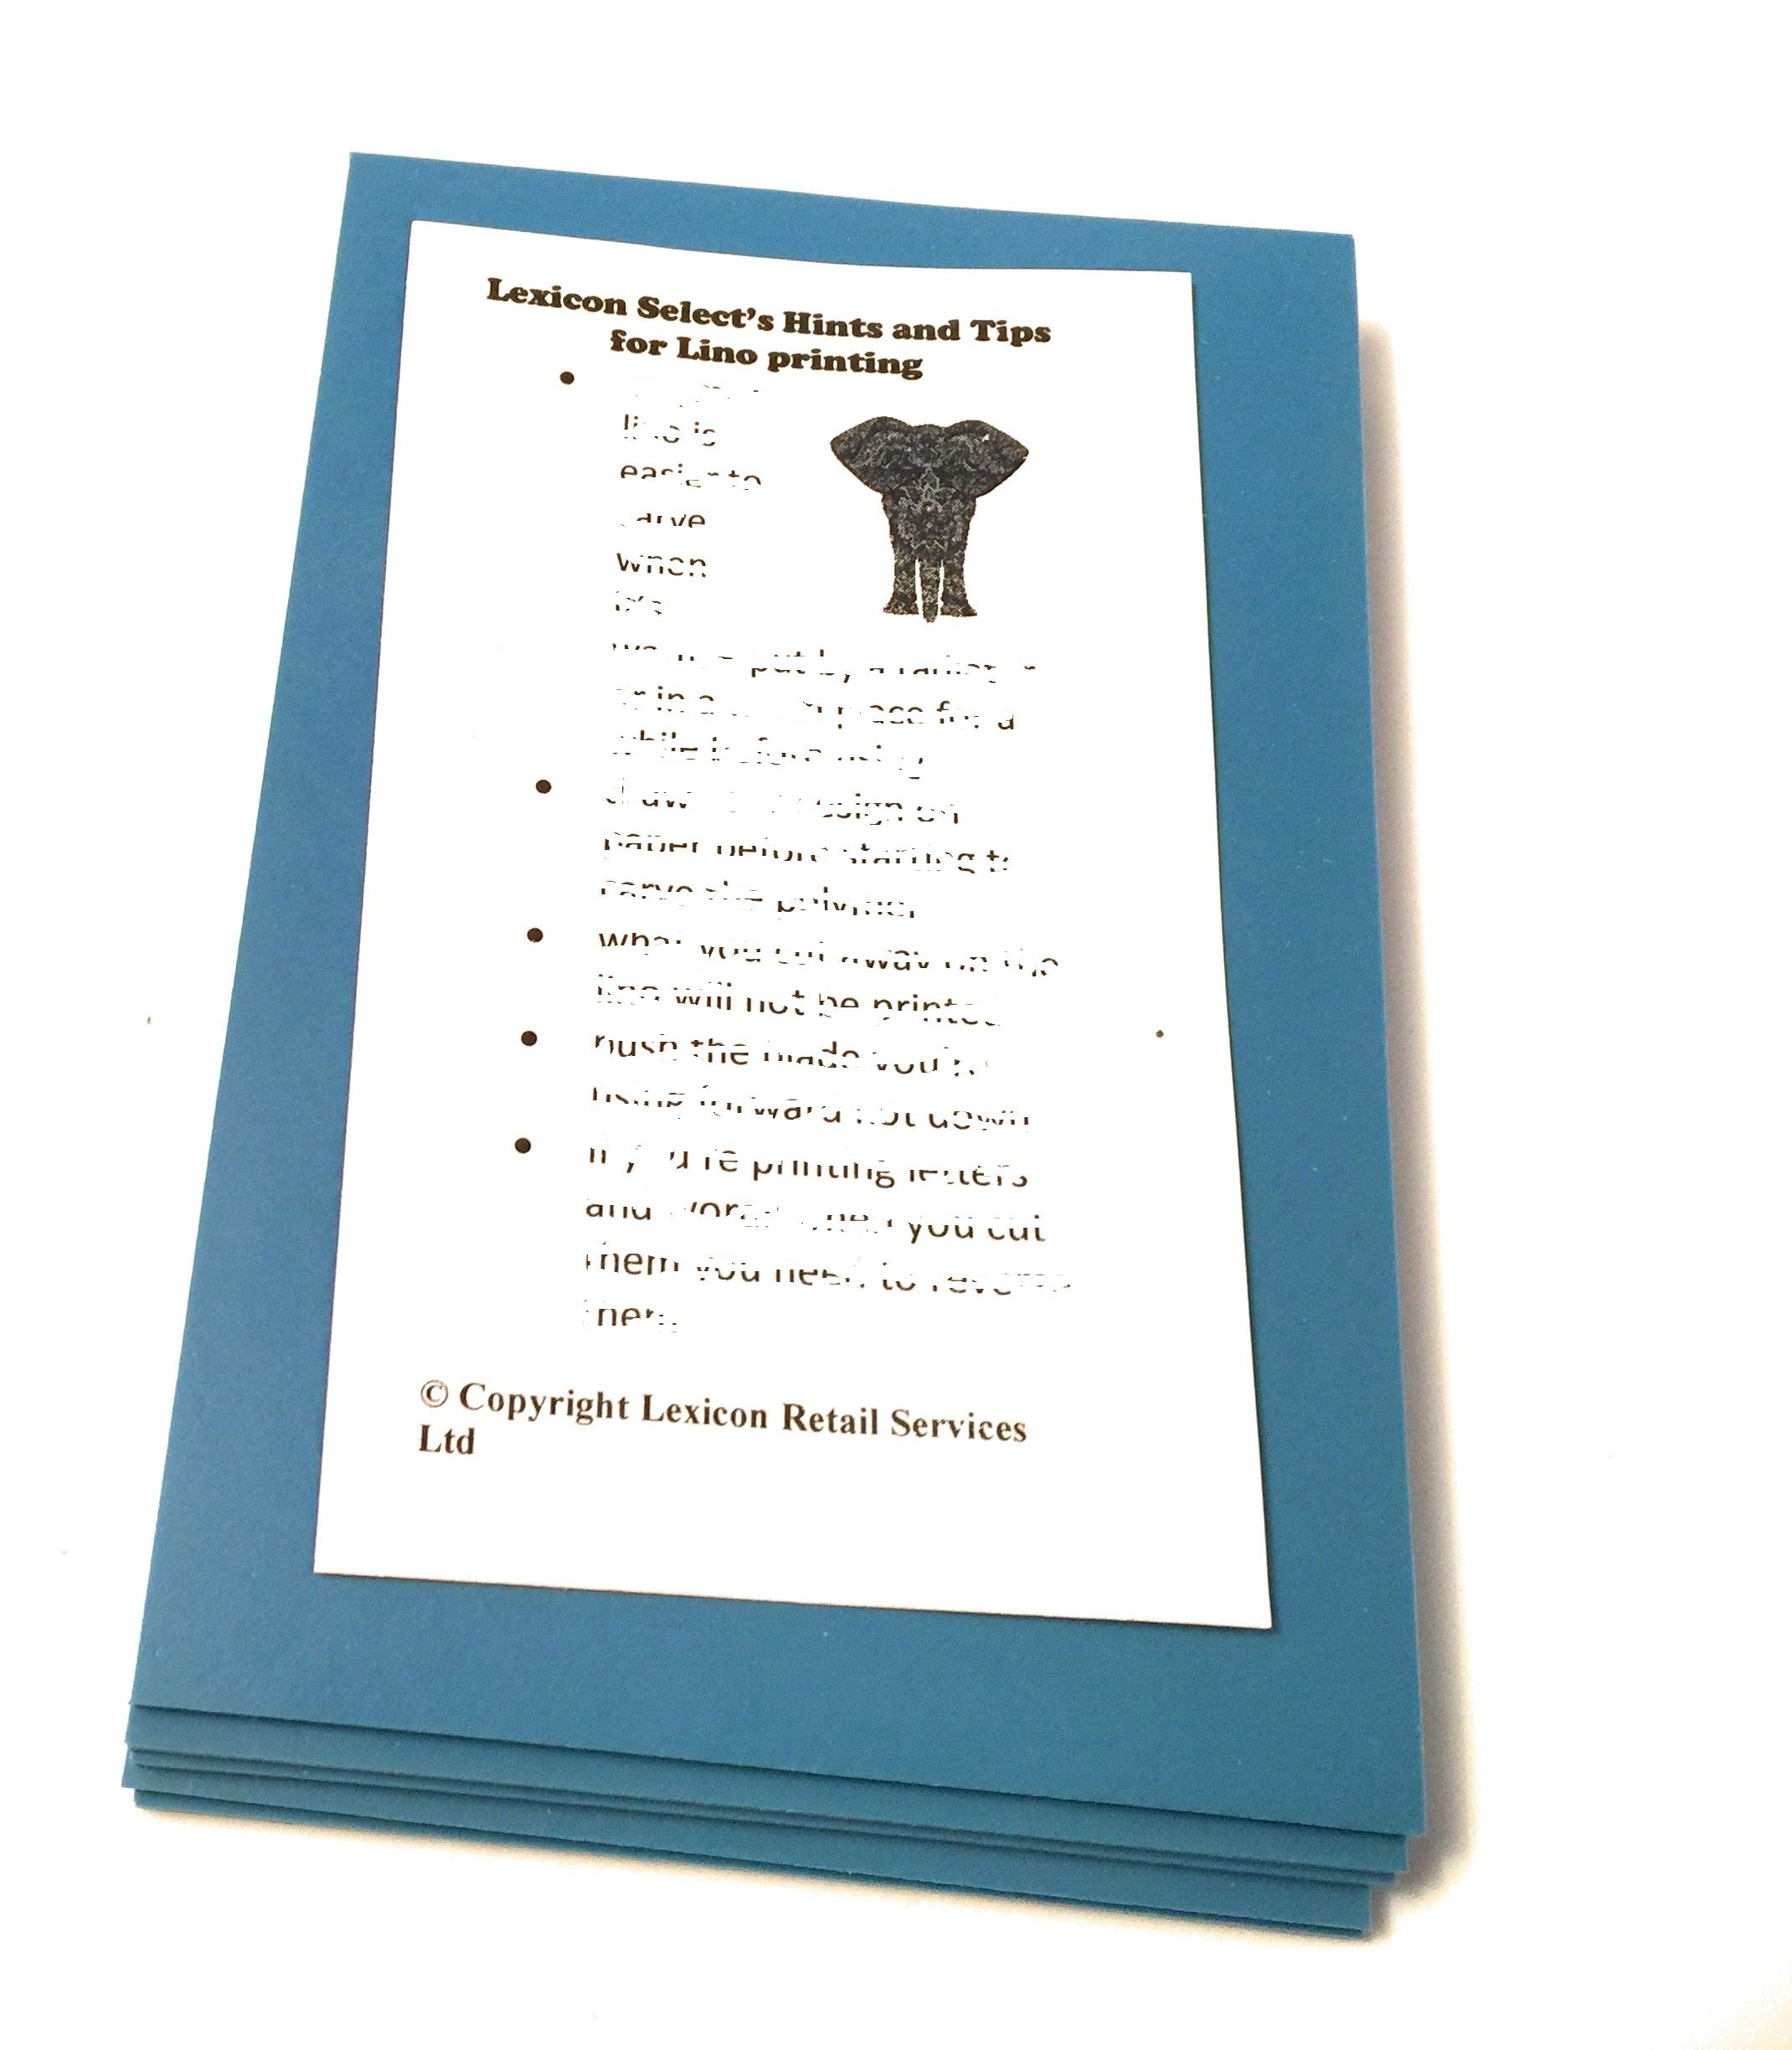 Lexicon Select's Hints and Tips
for Lino printing
lino is
easier to
carve
when
it's
put by a
or in a place for a
while before using
draw design on
paper before starting to
carve the polymer
what you cut away on the
lino will not be printed
push the blade you're
using forward not down
If you're printing letters
and words when you cut
them you need to reverse
them
© Copyright Lexicon Retail Services
Ltd